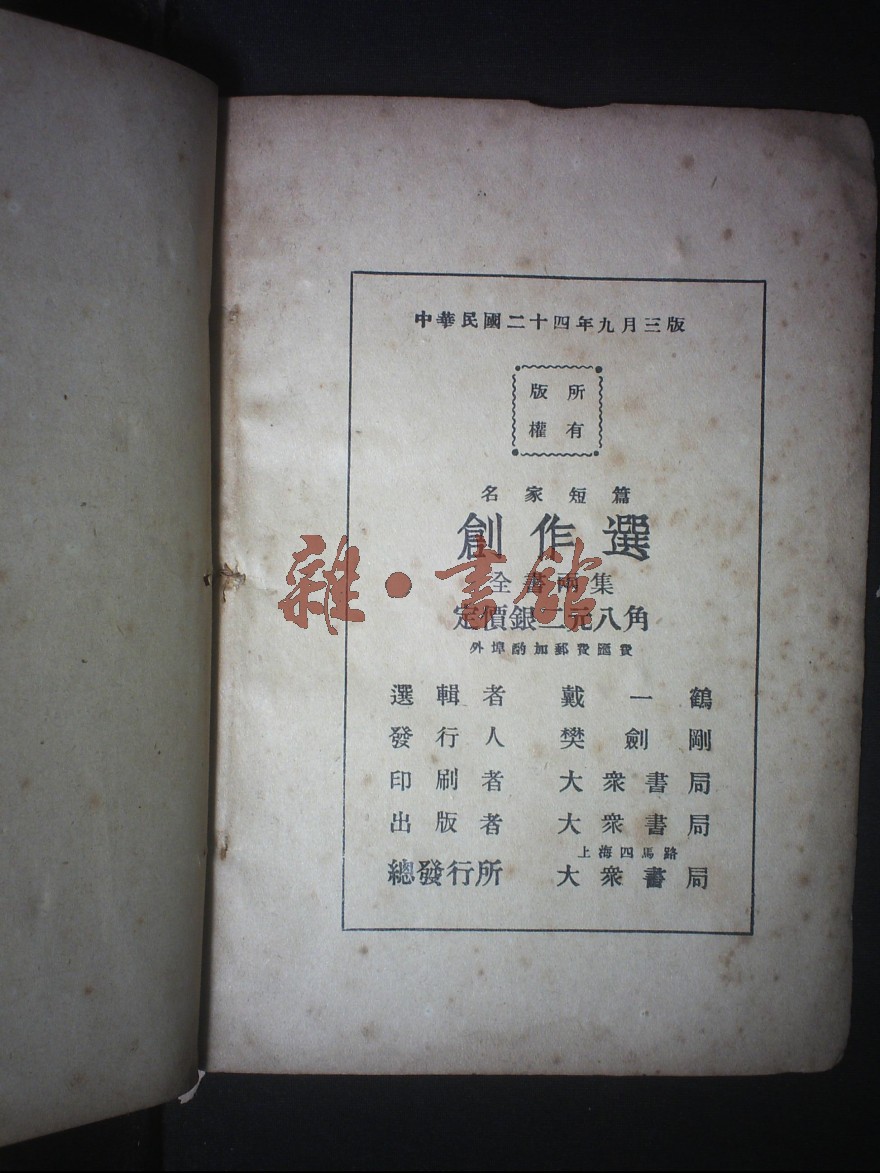 中華民國二十四年九月三版
版所
權有
名家短篇
創作選
雜·書館
全書兩集
定價銀二元八角
外埠酌加郵費匯費
選輯者 戴一鶴
發行人 樊劍剛
印刷者 大衆書局
出版者 大衆書局
上海四馬路
總發行所 大衆書局